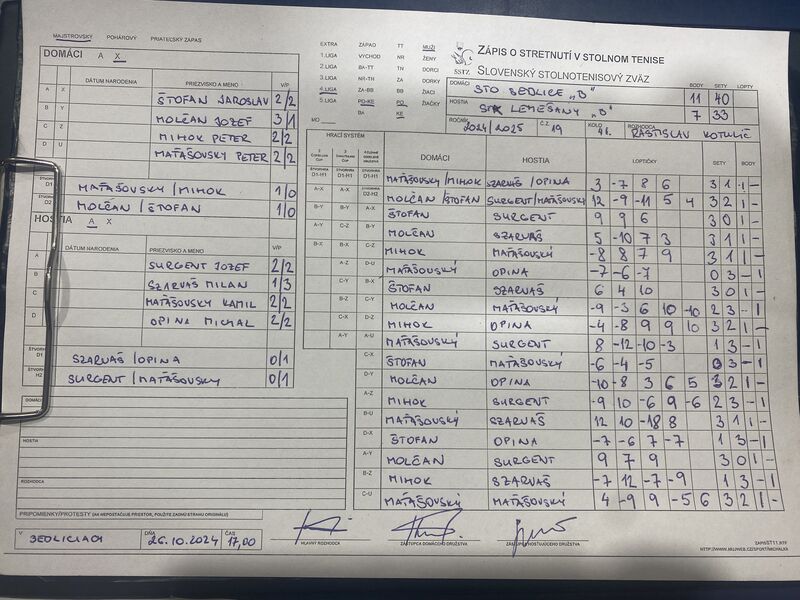 MAJSTROVSKÝ POHÁROVÝ PRIATEĽSKÝ ZÁPAS
DOMÁCI A X
DÁTUM NARODENIA PRIEZVISKO A MENO V/P
A X ŠTOFAN JAROSLAV 2/2
B Y MOLČAN JOZEF 3/1
C Z MIHOK PETER 2/2
D U MAŤAŠOVSKÝ PETER 2/2
D1 MAŤAŠOVSKÝ/MIHOK 1/0
D2 MOLČAN/ŠTOFAN 1/0
HOSTIA A X
DÁTUM NARODENIA PRIEZVISKO A MENO V/P
A SURGENT JOZEF 2/2
B SZARVAŠ MILAN 1/3
C MAŤAŠOVSKÝ KAMIL 2/2
D OPINA MICHAL 2/2
D1 SZARVAŠ/OPINA 0/1
H2 SURGENT/MAŤAŠOVSKÝ 0/1
DOMÁCI
HOSTIA
ROZHODCA
PRIPOMIENKY/PROTESTY (AK NEPOSTAČUJE PRIESTOR, POUŽITE ZADNÚ STRANU ORIGINÁLU)
V SEDLICIACH DŇA 26.10.2024 ČAS 17,00
EXTRA ZÁPAD TT MUŽI
1.LIGA VÝCHOD NR ŽENY
2.LIGA BA-TT TN DORCI
3.LIGA NR-TN ZA DORKY
4.LIGA ZA-BB BB ŽIACI
5.LIGA PO-KE PO ŽIAČKY
MO BA KE
SSTZ
ZÁPIS O STRETNUTÍ V STOLNOM TENISE
SLOVENSKÝ STOLNOTENISOVÝ ZVÄZ
DOMÁCI STO SEDLICE "B" BODY SETY LOPTY
11 40
HOSTIA STK LEMEŠANY "B" 7 33
ROČNÍK 2024/2025 Č.Z. 19 KOLO 4. ROZHODCA RASTISLAV KOTULIČ
HRACÍ SYSTÉM
DOMÁCI HOSTIA LOPTIČKY SETY BODY
MAŤAŠOVSKÝ/MIHOK SZARVAŠ/OPINA 3 -7 8 6 3 1 1 -
MOLČAN/ŠTOFAN SURGENT/MAŤAŠOVSKÝ 12 -9 -11 5 4 3 2 1 -
ŠTOFAN SURGENT 9 9 6 3 0 1 -
MOLČAN SZARVAŠ 5 -10 7 3 3 1 1 -
MIHOK MAŤAŠOVSKÝ -8 8 7 9 3 1 1 -
MAŤAŠOVSKÝ OPINA -7 -6 -7 0 3 - 1
ŠTOFAN SZARVAŠ 6 4 10 3 0 1 -
MOLČAN MAŤAŠOVSKÝ -9 -3 6 10 -10 2 3 - 1
MIHOK OPINA -4 -8 9 9 10 3 2 1 -
MAŤAŠOVSKÝ SURGENT 8 -12 -10 -3 1 3 - 1
ŠTOFAN MAŤAŠOVSKÝ -6 -4 -5 0 3 - 1
MOLČAN OPINA -10 -8 3 6 5 3 2 1 -
MIHOK SURGENT -9 10 -6 9 -6 2 3 - 1
MAŤAŠOVSKÝ SZARVAŠ 12 10 -18 8 3 1 1 -
ŠTOFAN OPINA -7 -6 7 -7 1 3 - 1
MOLČAN SURGENT 9 7 9 3 0 1 -
MIHOK SZARVAŠ -7 12 -7 -9 1 3 - 1
MAŤAŠOVSKÝ MAŤAŠOVSKÝ 4 -9 9 -5 6 3 2 1 -
HLAVNÝ ROZHODCA ZÁSTUPCA DOMÁCEHO DRUŽSTVA ZÁSTUPCA HOSŤUJÚCEHO DRUŽSTVA